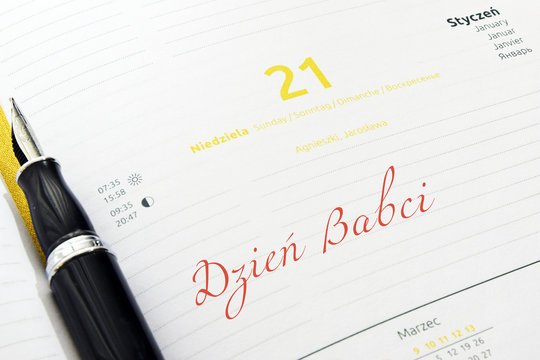 Styczeń
January
Januar
Janvier
Январь
21
Niedziela Sunday / Sonntag / Dimanche / Воскресенье
Agnieszki, Jarosława
07:35
15:58
09:35
20:47
Dzień Babci
Marzec
9 10 11 12 13